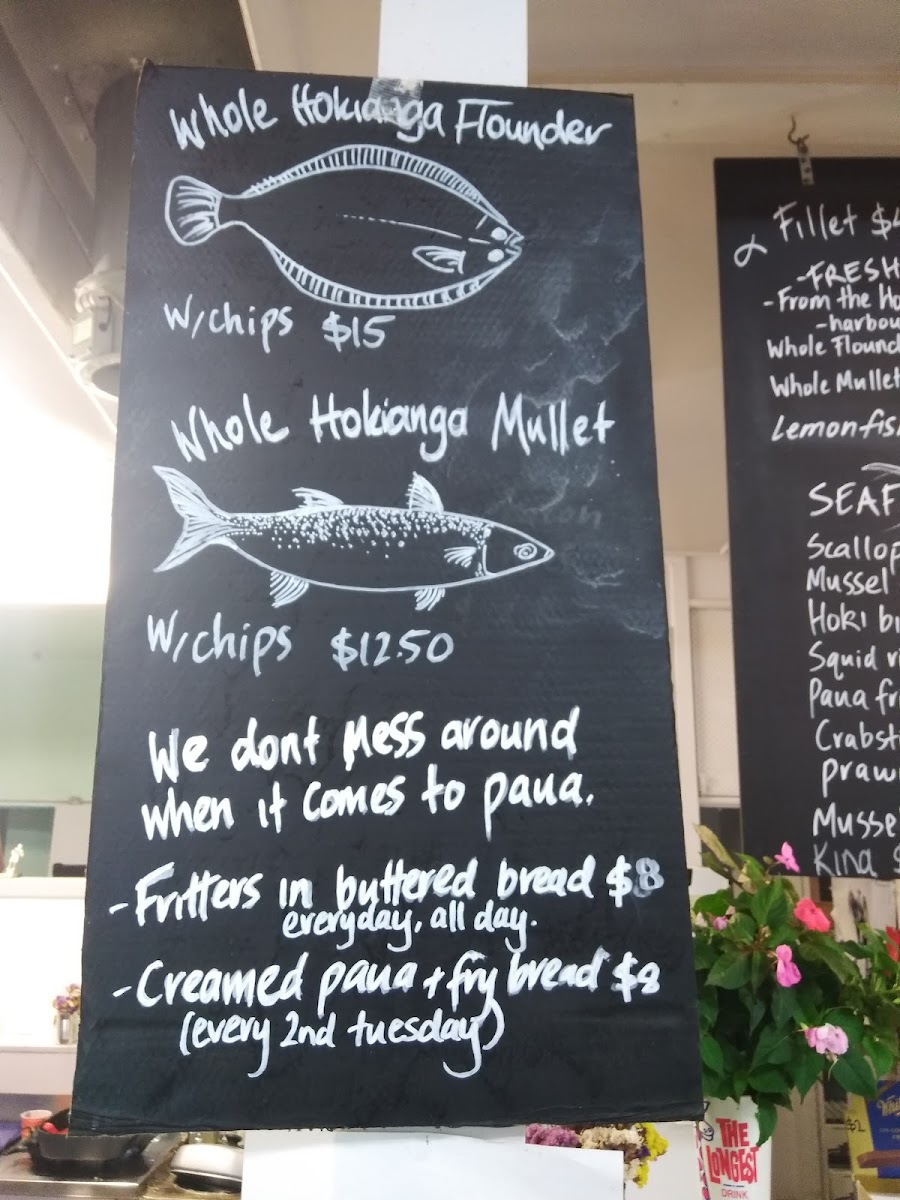 Whole Hokianga Flounder
W/chips $15
Whole Hokianga Mullet
W/chips $12.50
We dont Mess around
when it comes to paua.
-Fritters in buttered bread $8
everyday, all day.
-Creamed paua + fry bread $8
(every 2nd tuesday)
Fillet
-FRESH
-From the
Whole
Whole Mullet
Scallop
Mussel
Hoki
Squid
Paua
Kina
THE
LONGEST
DRINK
$2